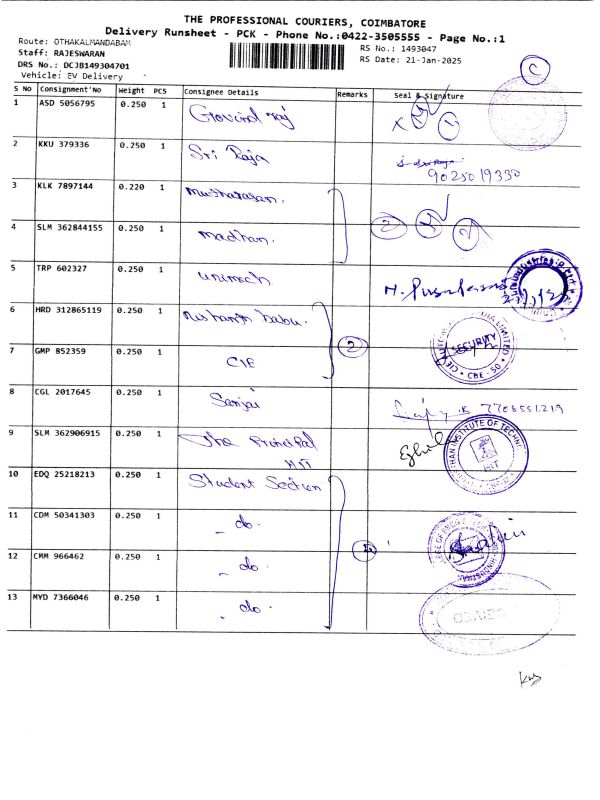 THE PROFESSIONAL COURIERS, COIMBATORE
Delivery Runsheet - PCK - Phone No.:0422-3505555 - Page No.:1
Route: OTHAKALMANDABAM
Staff: RAJESWARAN
DRS No.: DCJB149304701
Vehicle: EV Delivery
RS No.: 1493047
RS Date: 21-Jan-2025
C
S No Consignment'No Weight PCS Consignee Details Remarks Seal & Signature
1 ASD 5056795 0.250 1 Govind raj X
2 KKU 379336 0.250 1 Sri Raja
9025019330
3 KLK 7897144 0.220 1
4 SLM 362844155 0.250 1 madhan. 2
5 TRP 602327 0.250 1 unimech
6 HRD 312865119 0.250 1 Nishanth babu. 2
SECURITY
CBE - 50
7 GMP 852359 0.250 1 CIE
8 CGL 2017645 0.250 1 Sanjai 7708551219
9 SLM 362906915 0.250 1 The Principal
HIT
INSTITUTE OF TECHNO
HIT
10 EDQ 25218213 0.250 1 Student Section
11 CDM 50341303 0.250 1 - do -
12 CMM 966462 0.250 1 - do -
13 MYD 7366046 0.250 1 - do -